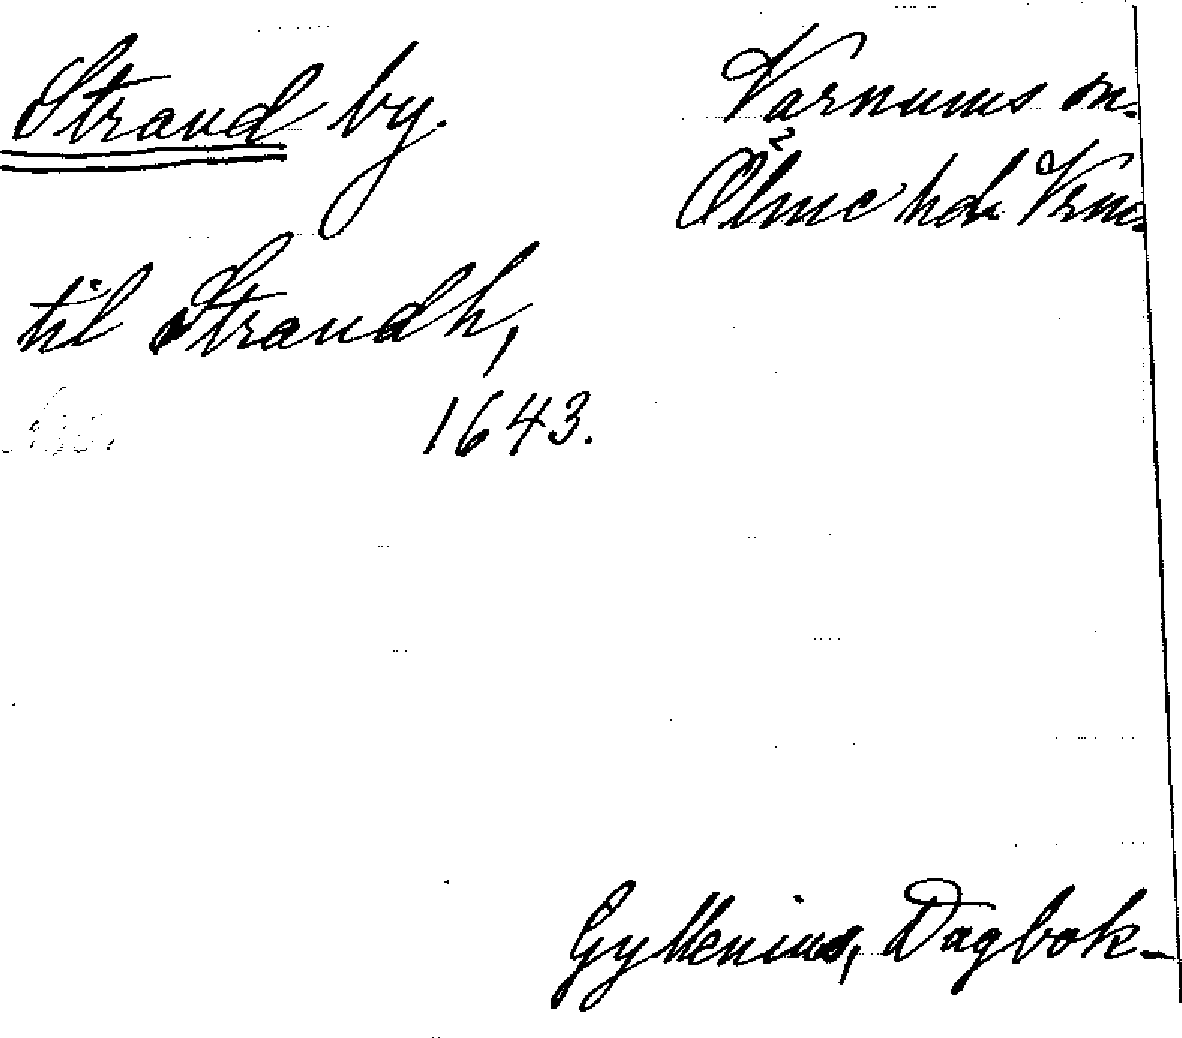 Strand by.
Varnums sn.
Ölme hd. Vrml.
til Strandh,
1643.
Gyllenius, Dagbok